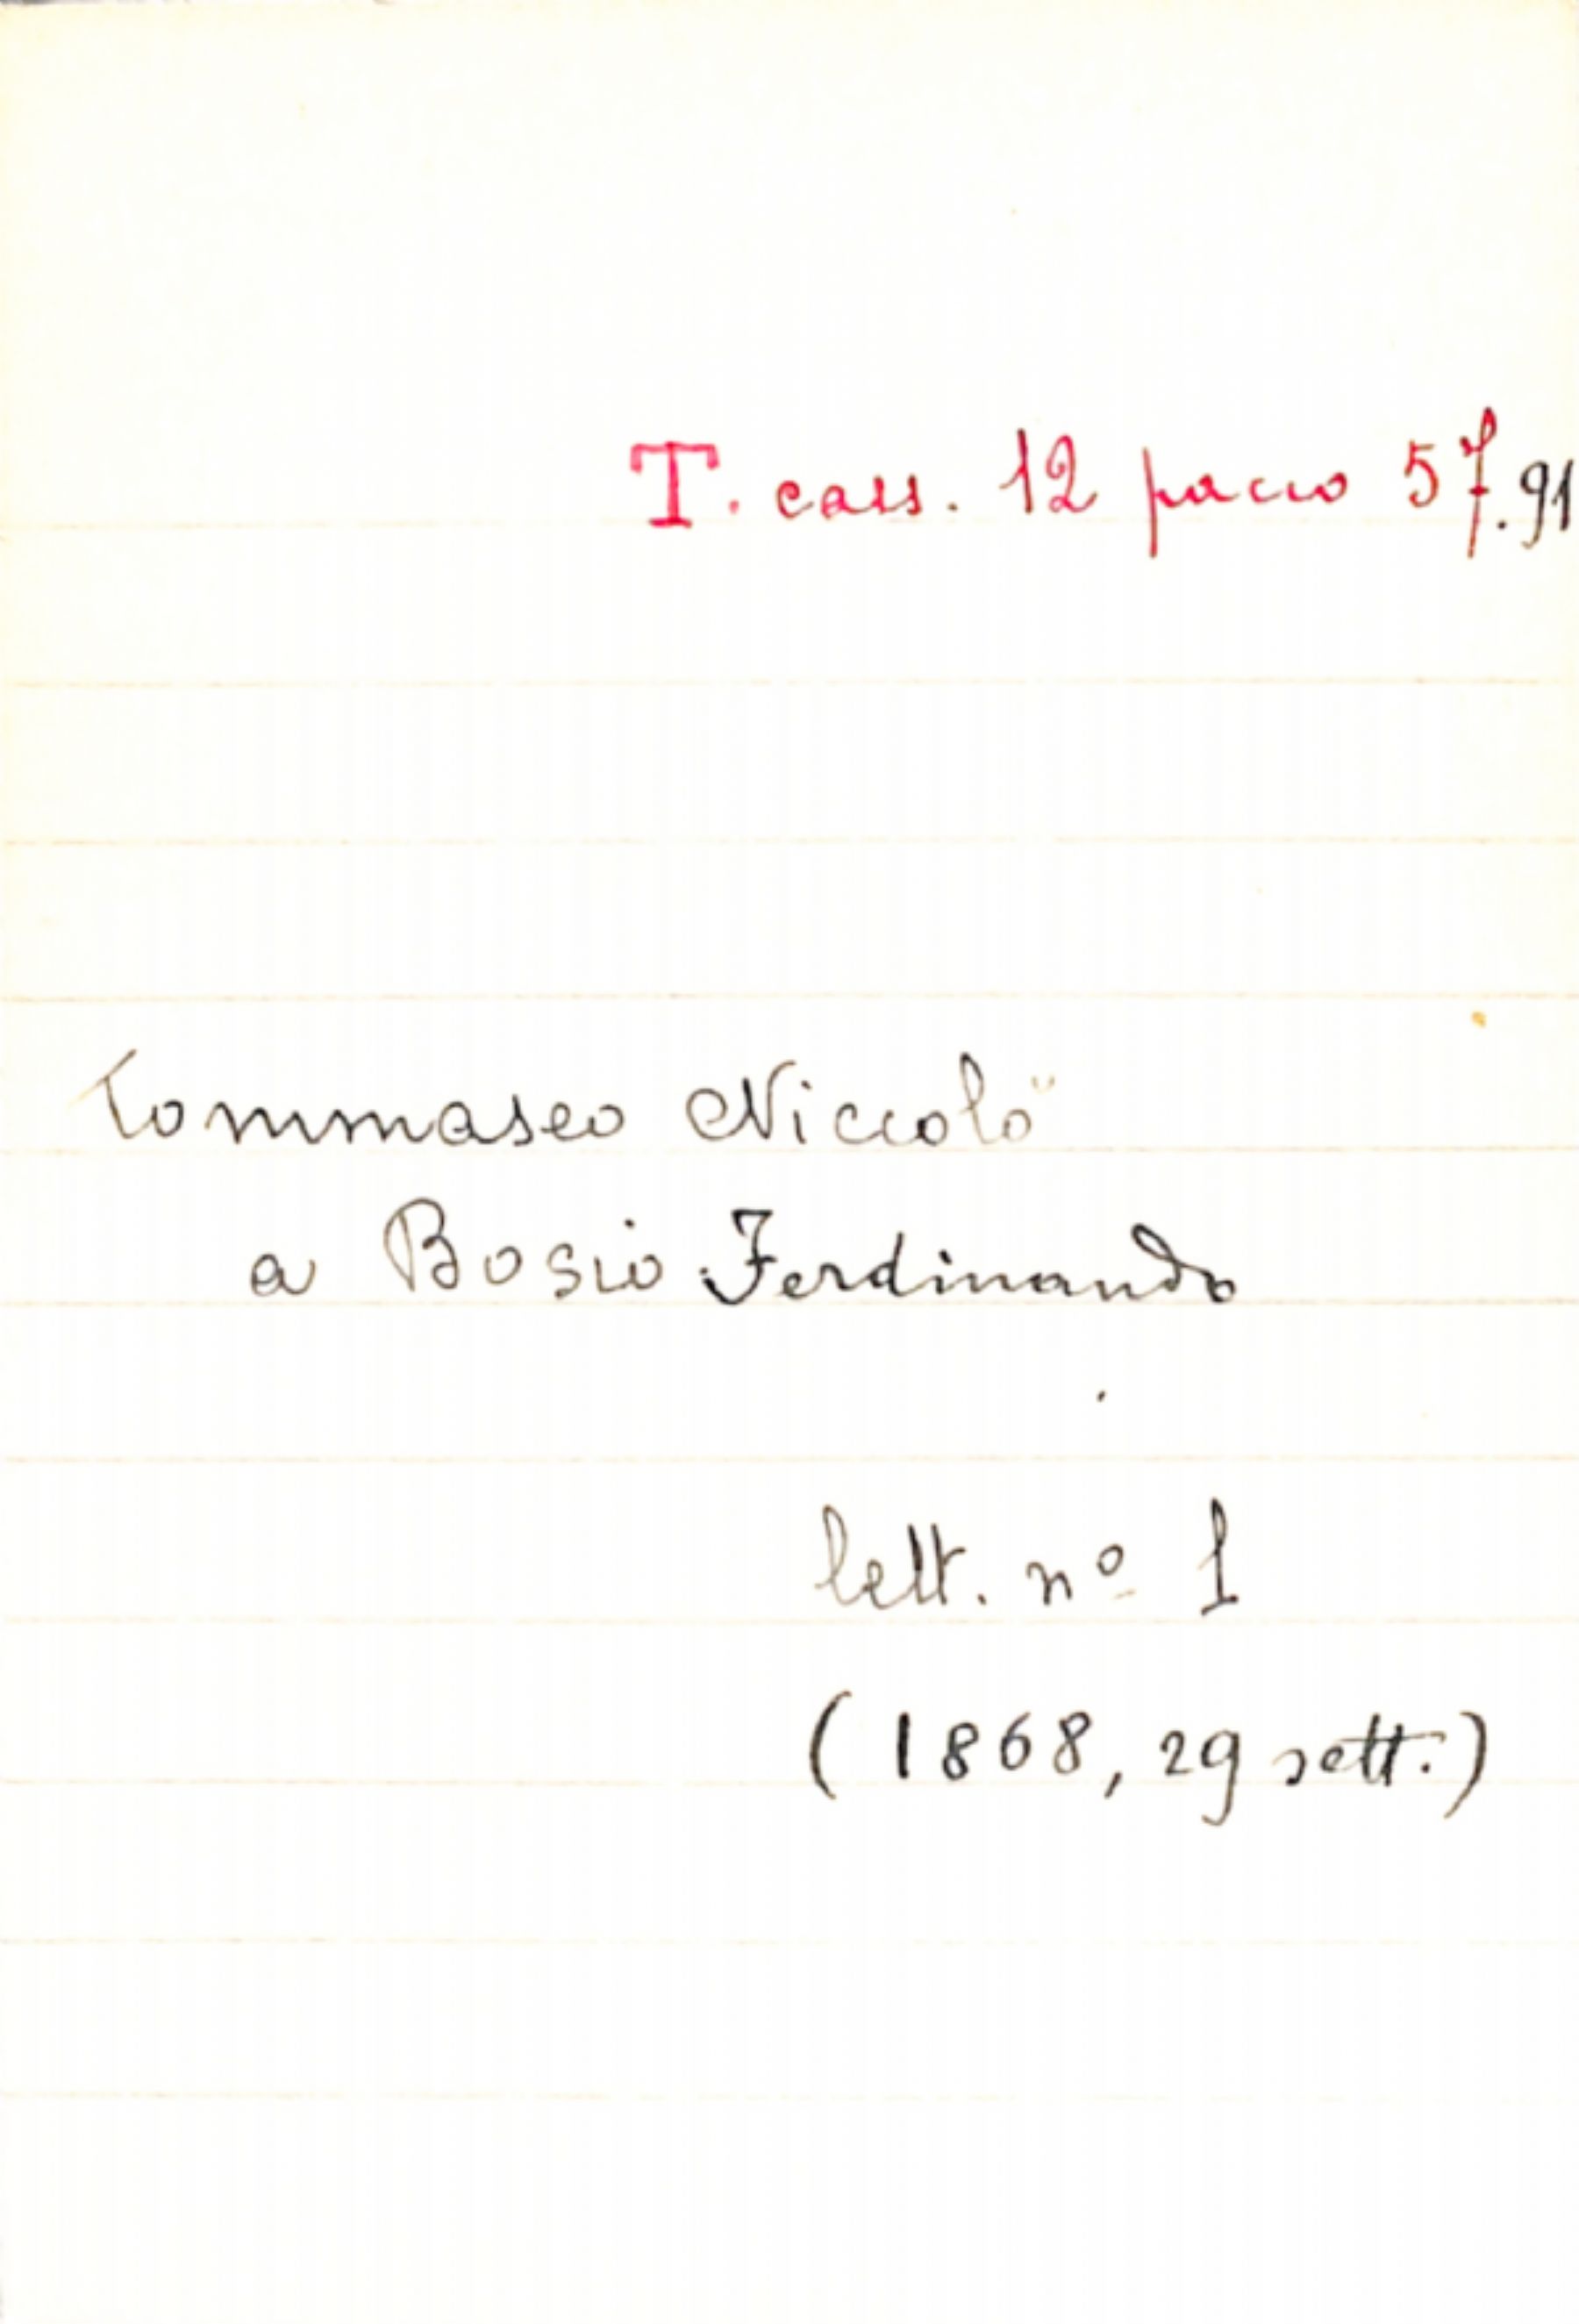 T. cass. 12 pacco 57.91
Tommaseo Niccolò
a Bosio Ferdinando
lett. nº 1
(1868, 29 sett.)